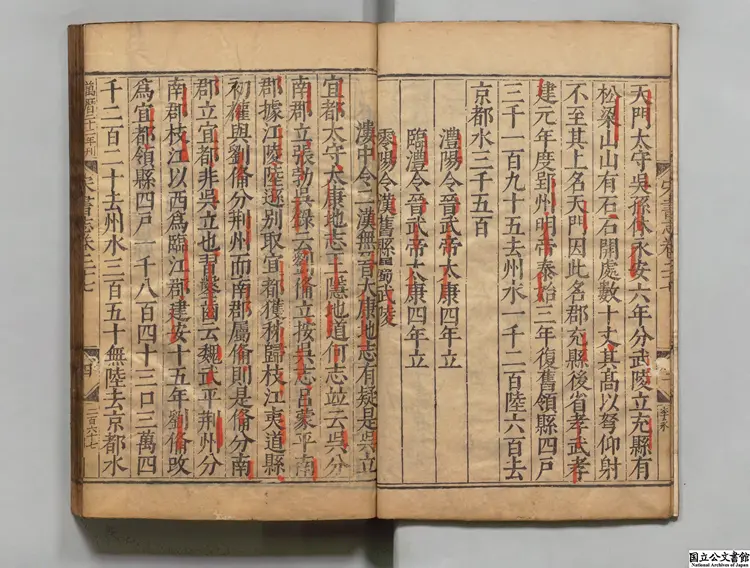 天門太守吳孫休永安六年分武陵立充縣有
松梁山山有石石開處數十丈其高以弩仰射
不至其上名天門因此名郡充縣後省孝武孝
建元年度郢州明帝泰始三年復舊領縣四戶
三千一百九十五去州水一千二百陸六百去
京都水三千五百
澧陽令晉武帝太康四年立
臨澧令晉武帝太康四年立
零陽令漢舊縣屬武陵
漊中令二漢無晉太康地志有疑是吳立
宜都太守太康地志王隱地道何志並云吳分
南郡立張勃吳錄云劉備立按吳志呂蒙平南
郡據江陵陸遜別取宜都獲秭歸枝江夷道縣
初權與劉備分荊州而南郡屬備則是備分南
郡立宜都非吳立也習鑿齒云魏武平荊州分
南郡枝江以西爲臨江郡建安十五年劉備改
爲宜都領縣四戶一千八百四十三口三萬四
千二百二十去州水三百五十無陸去京都水
萬曆二十二年刊
宋書志卷二十七
四
二百六十七
国立公文書館
National Archives of Japan